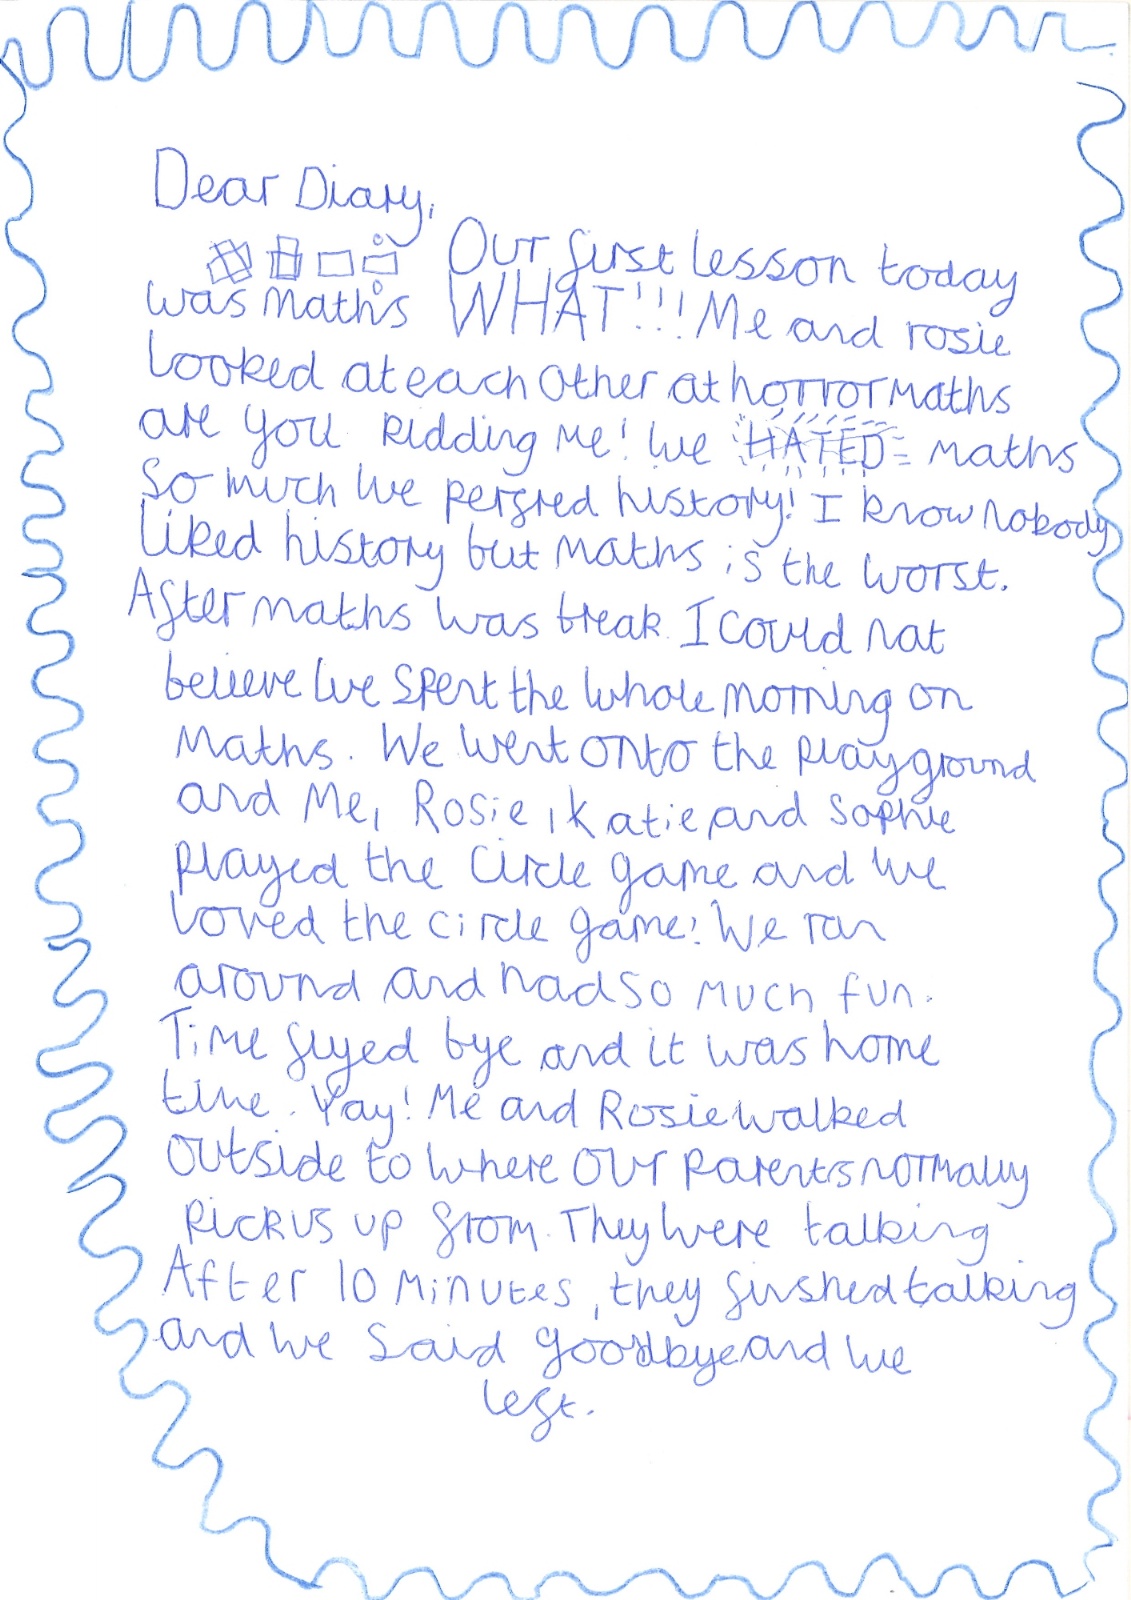 Dear Diary,
Our first lesson today
was maths WHAT!!! Me and rosie
looked at each other at horror maths
are you kidding me! We HATED maths
So much we perfred history! I know nobody
liked history but maths is the worst.
After maths was break. I could nat
believe we spent the whole morning on
maths. We went onto the playground
and Me, Rosie, Katie and Sophie
played the circle game and we
loved the circle game! We ran
around and had so much fun.
Time flyed bye and it was home
time. Yay! Me and Rosie walked
outside to where our parents normally
pick us up from. They were talking
After 10 minutes, they finshed talking
and we said goodbye and we
left.